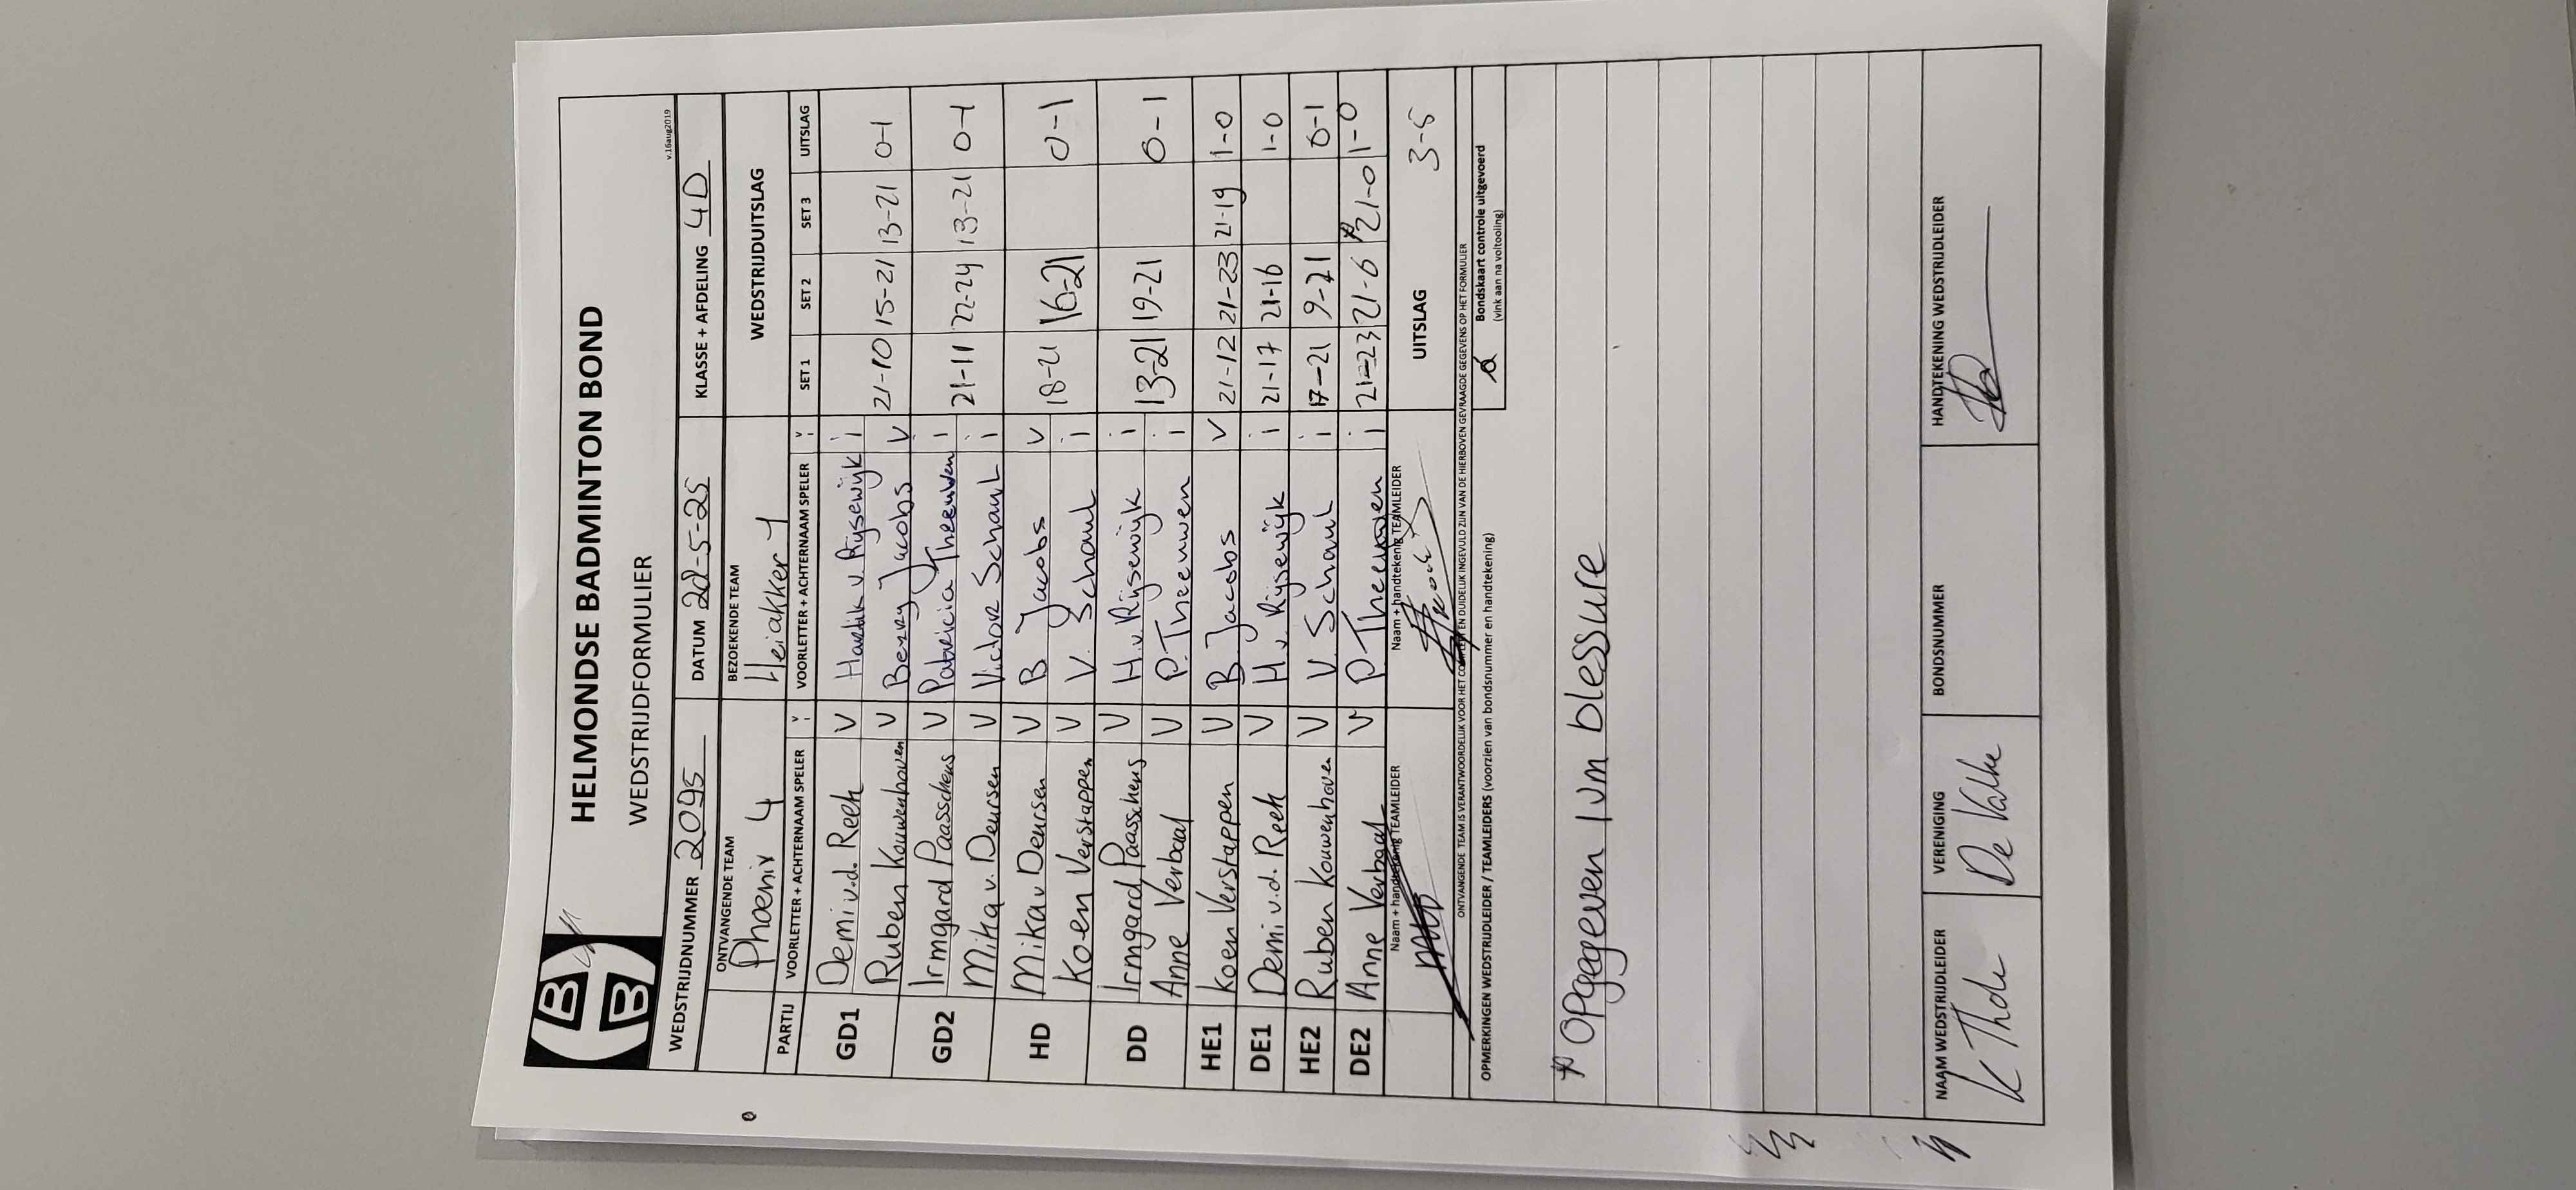 HELMONDSE BADMINTON BOND
WEDSTRIJDFORMULIER
v.16aug2019
WEDSTRIJDNUMMER 2095 DATUM 20-5-25 KLASSE + AFDELING 4D
ONTVANGENDE TEAM BEZOEKENDE TEAM WEDSTRIJDUITSLAG
Phoenix 4 Heiakker 1
PARTIJ VOORLETTER + ACHTERNAAM SPELER V VOORLETTER + ACHTERNAAM SPELER V SET 1 SET 2 SET 3 UITSLAG
GD1 Demi v.d. Reek V v. Rijsewijk i
Ruben Kouwenhoven V Berry Jacobs V 21-10 15-21 13-21 0-1
GD2 Irmgard Paasschens V Patricia Theeuwen i
Mika v. Deursen V Victor Schaut i 21-11 22-24 13-21 0-1
HD Mika v Deursen V B Jacobs V
Koen Verstappen V V. Schaut i 18-21 16-21 0-1
DD Irmgard Paasschens V H. v. Rijsewijk i
Anne Verbaal V P. Theeuwen i 13-21 19-21 0-1
HE1 Koen Verstappen V B. Jacobs V 21-12 21-23 21-19 1-0
DE1 Demi v.d. Reek V H. v. Rijsewijk i 21-17 21-16 1-0
HE2 Ruben Kouwenhoven V V. Schaut i 17-21 9-21 0-1
DE2 Anne Verbaal V P. Theeuwen i 21-23 21-6 *21-0 1-0
Naam + handtekenig TEAMLEIDER Naam + handtekenig TEAMLEIDER UITSLAG 3-5
ONTVANGENDE TEAM IS VERANTWOORDELIJK VOOR HET EN DUIDELIJK INGEVULD ZIJN VAN DE HIERBOVEN GEVRAAGDE GEGEVENS OP HET FORMULIER
OPMERKINGEN WEDSTRIJDLEIDER / TEAMLEIDERS (voorzien van bondsnummer en handtekening)
Bondskaart controle uitgevoerd
(vink aan na voltooiing)
* Opgegeven ivm blessure
NAAM WEDSTRIJDLEIDER VERENIGING BONDSNUMMER HANDTEKENING WEDSTRIJDLEIDER
K De